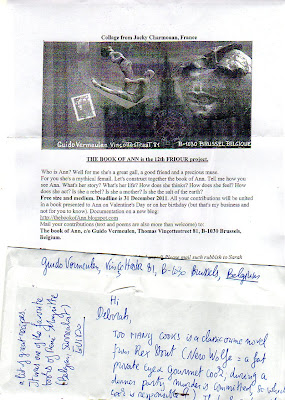 College from Jocky Charmenau, France
Guido Vermeulen Vinçottestraat 81 B-1030 BRUSSEL BELGIQUE
THE BOOK OF ANN is the 12th FRIOUR project.
Who is Ann? Well for me she's a great gal, a good friend and a precious muse.
For you she's a mythical femail. Let's construct together the book of Ann. Tell me how you
see Ann. What's her story? What's her life? How does she think? How does she feel? How
does she act? Is she a rebel? Is she a mother? Is she the salt of the earth?
Free size and medium. Deadline is 31 December 2011. All your contributions will be united
in a book presented to Ann on Valentine's day or on her birthday (but that's my business and
not for you to know). Documentation on a new blog:
http://thebookofAnn.blogspot.com
Mail your contributions (text and poems are also more than welcome) to:
The book of Ann, c/o Guido Vermeulen, Thomas Vinçottestraat 81, B-1030 Brussel,
Belgium.
such rubbish to Sarah
Guido Vermeulen, Vinçottestr 81, B-1030 Brussels, Belgium
Hi,
Deborah,
TOO MANY COOKS is a classic crime novel
from Rex Stout (Nero Wolfe = a fat
private eye & gourmet cook, during a
dinner party murder is committed, so which
cook is responsible
a lot of great recipes.
It was one of the favorite
books of
Belgian Surrealist
GUIDO